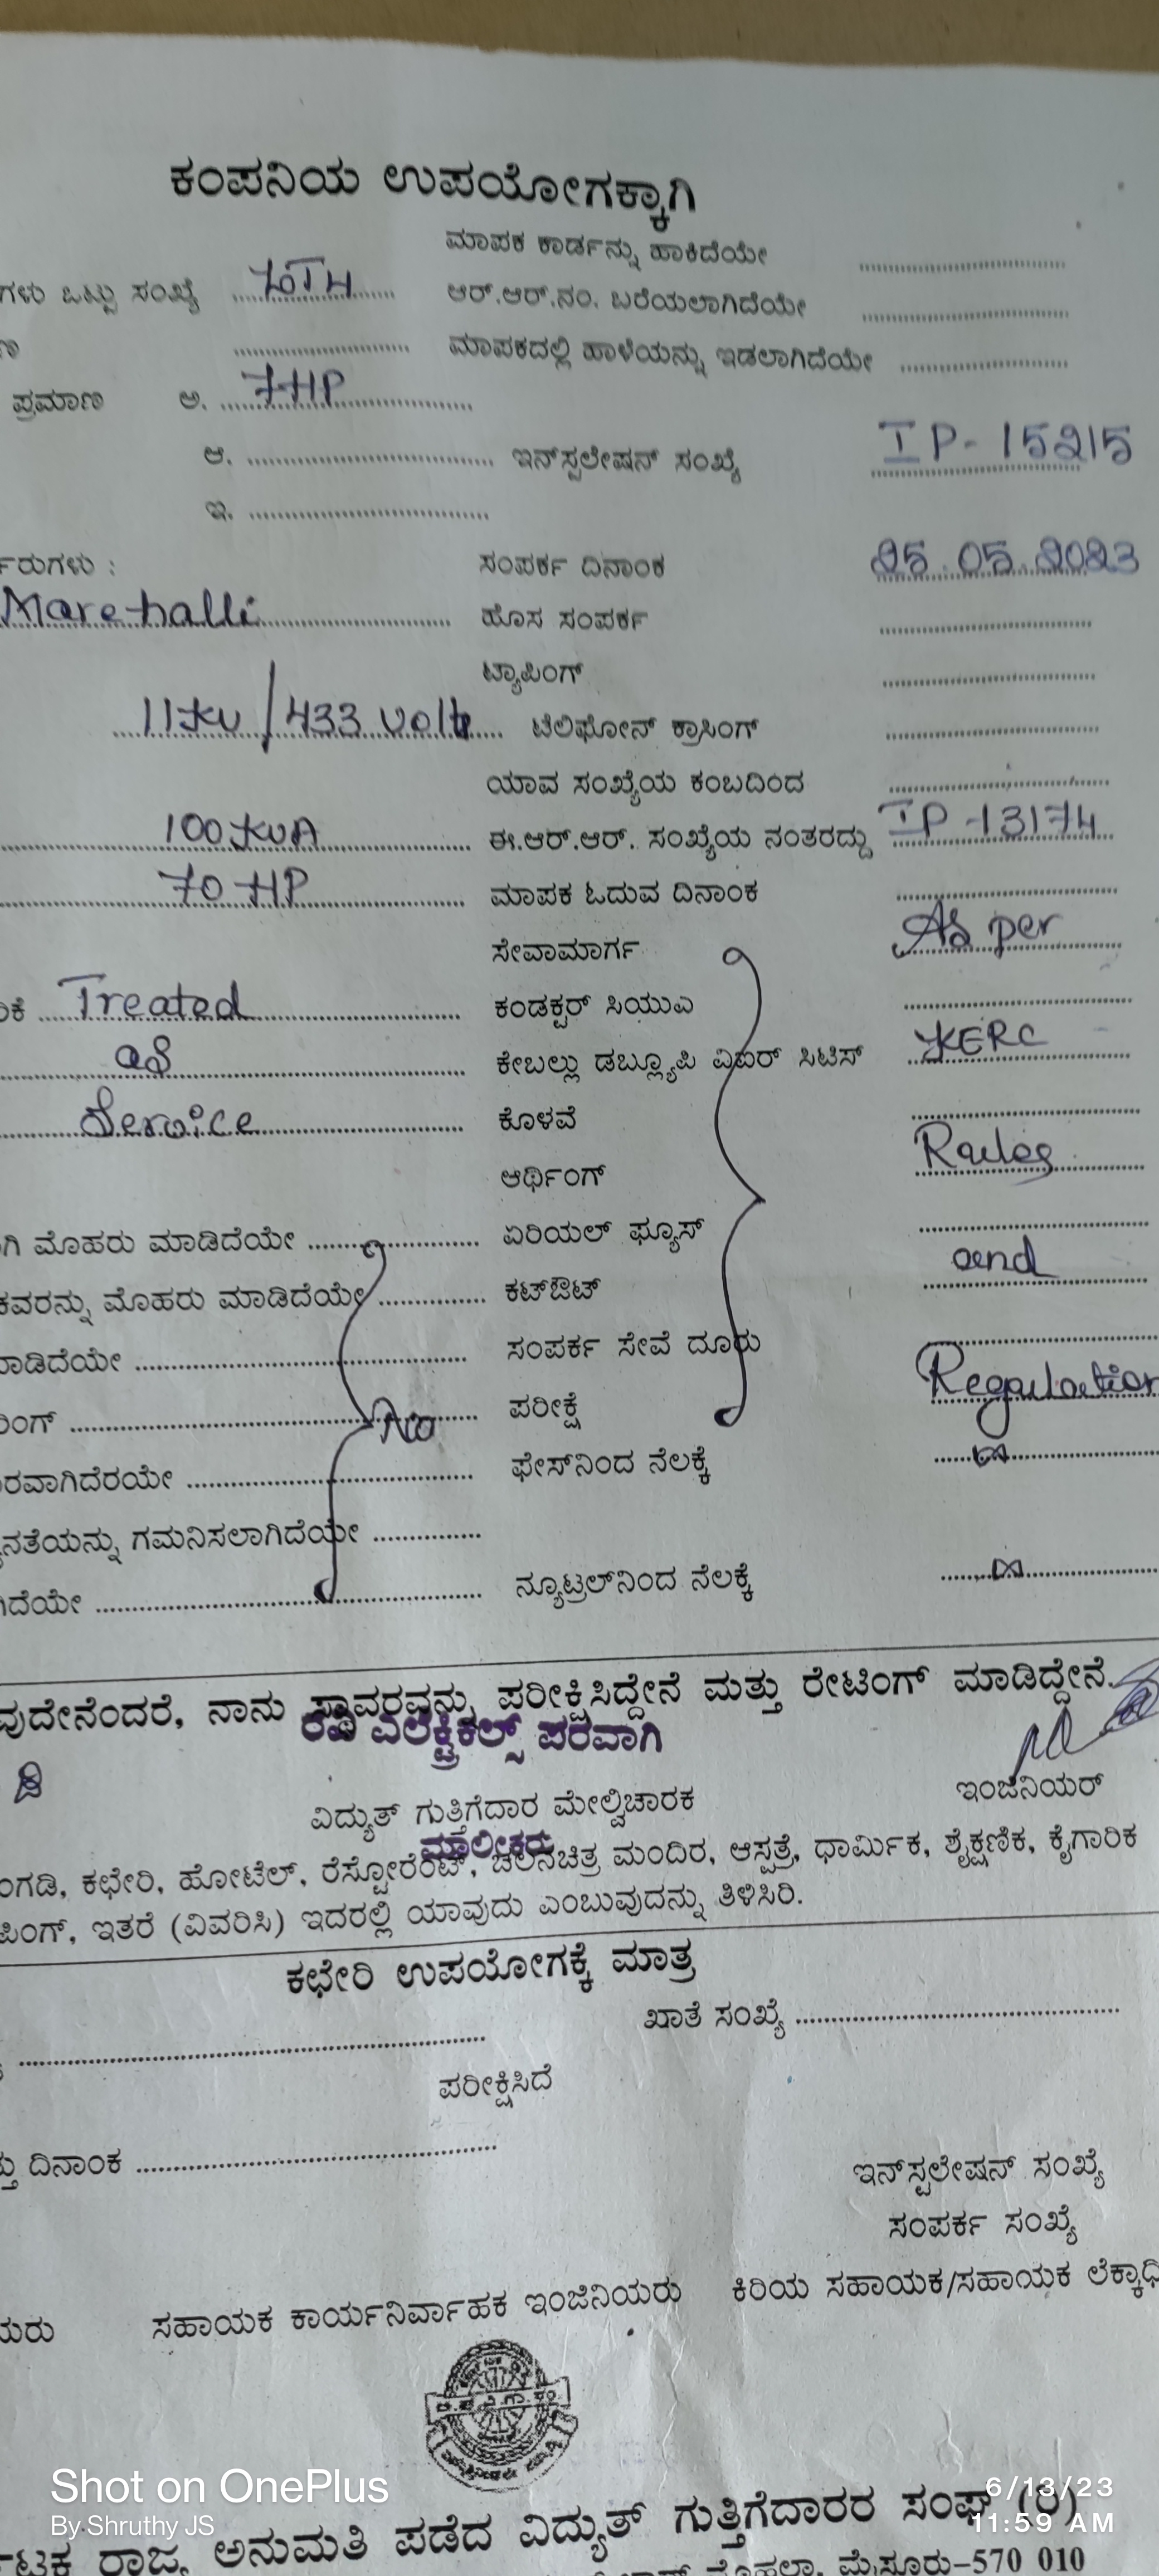 ಕಂಪನಿಯ ಉಪಯೋಗಕ್ಕಾಗಿ
ಮಾಪಕ ಕಾರ್ಡನ್ನು ಹಾಕಿದೆಯೇ ..........
ಗಳು ಒಟ್ಟು ಸಂಖ್ಯೆ .......... ಆರ್.ಆರ್.ನಂ. ಬರೆಯಲಾಗಿದೆಯೇ ..........
.......... ಮಾಪಕದಲ್ಲಿ ಹಾಳೆಯನ್ನು ಇಡಲಾಗಿದೆಯೇ ..........
ಪ್ರಮಾಣ ಅ. 7HP
ಆ. .......... ಇನ್‌ಸ್ಟಲೇಷನ್ ಸಂಖ್ಯೆ IP-15215
ಇ. ..........
ರುಗಳು : ಸಂಪರ್ಕ ದಿನಾಂಕ 25.05.2023
Marehalli ಹೊಸ ಸಂಪರ್ಕ ..........
ಟ್ಯಾಪಿಂಗ್ ..........
11KV/433 Volts ಟೆಲಿಫೋನ್ ಕ್ರಾಸಿಂಗ್ ..........
ಯಾವ ಸಂಖ್ಯೆಯ ಕಂಬದಿಂದ ..........
100KVA ಈ.ಆರ್.ಆರ್. ಸಂಖ್ಯೆಯ ನಂತರದ್ದು IP-13174
70HP ಮಾಪಕ ಓದುವ ದಿನಾಂಕ ..........
ಸೇವಾಮಾರ್ಗ As per
ಕೆ Treated ಕಂಡಕ್ಟರ್ ಸಿಯುಎ ..........
as ಕೇಬಲ್ಲು ಡಬ್ಲ್ಯೂಪಿ ವಿಐರ್ ಸಿಟಿಸ್ KERC
Service ಕೊಳವೆ ..........
ಆರ್ಥಿಂಗ್ Rules
ಗಿ ಮೊಹರು ಮಾಡಿದೆಯೇ .......... ಏರಿಯಲ್ ಫ್ಯೂಸ್ ..........
ಕವರನ್ನು ಮೊಹರು ಮಾಡಿದೆಯೇ .......... ಕಟ್‌ಔಟ್ and
ಮಾಡಿದೆಯೇ .......... ಸಂಪರ್ಕ ಸೇವೆ ದೂರು ..........
ರಿಂಗ್ .......... No ಪರೀಕ್ಷೆ Regulation
ರವಾಗಿದೆರಯೇ .......... ಫೇಸ್‌ನಿಂದ ನೆಲಕ್ಕೆ ∞
ನತೆಯನ್ನು ಗಮನಿಸಲಾಗಿದೆಯೇ ..........
ಗಿದೆಯೇ .......... ನ್ಯೂಟ್ರಲ್‌ನಿಂದ ನೆಲಕ್ಕೆ ∞
ವುದೇನೆಂದರೆ, ನಾನು ಸ್ಥಾವರವನ್ನು ಪರೀಕ್ಷಿಸಿದ್ದೇನೆ ಮತ್ತು ರೇಟಿಂಗ್ ಮಾಡಿದ್ದೇನೆ.
ಎಲೆಕ್ಟ್ರಿಕಲ್ಸ್ ಪರವಾಗಿ
ಇಂಜಿನಿಯರ್
ವಿದ್ಯುತ್ ಗುತ್ತಿಗೆದಾರ ಮೇಲ್ವಿಚಾರಕ
ಮಾಲೀಕರು
ಂಗಡಿ, ಕಛೇರಿ, ಹೋಟೆಲ್, ರೆಸ್ಟೋರೆಂಟ್, ಚಲನಚಿತ್ರ ಮಂದಿರ, ಆಸ್ಪತ್ರೆ, ಧಾರ್ಮಿಕ, ಶೈಕ್ಷಣಿಕ, ಕೈಗಾರಿಕ
ಪಿಂಗ್, ಇತರೆ (ವಿವರಿಸಿ) ಇದರಲ್ಲಿ ಯಾವುದು ಎಂಬುವುದನ್ನು ತಿಳಿಸಿರಿ.
ಕಛೇರಿ ಉಪಯೋಗಕ್ಕೆ ಮಾತ್ರ
.......... ಖಾತೆ ಸಂಖ್ಯೆ ..........
ಪರೀಕ್ಷಿಸಿದೆ
ತ್ತು ದಿನಾಂಕ ..........
ಇನ್‌ಸ್ಟಲೇಷನ್ ಸಂಖ್ಯೆ
ಸಂಪರ್ಕ ಸಂಖ್ಯೆ
ಯರು ಸಹಾಯಕ ಕಾರ್ಯನಿರ್ವಾಹಕ ಇಂಜಿನಿಯರು ಕಿರಿಯ ಸಹಾಯಕ/ಸಹಾಯಕ ಲೆಕ್ಕಾಧಿ
Shot on OnePlus
By Shruthy JS
6/13/23
11:59 AM
ರ್ನಾಟಕ ರಾಜ್ಯ ಅನುಮತಿ ಪಡೆದ ವಿದ್ಯುತ್ ಗುತ್ತಿಗೆದಾರರ ಸಂಘ (ರಿ)
ಮೊಹಲ್ಲಾ, ಮೈಸೂರು-570 010